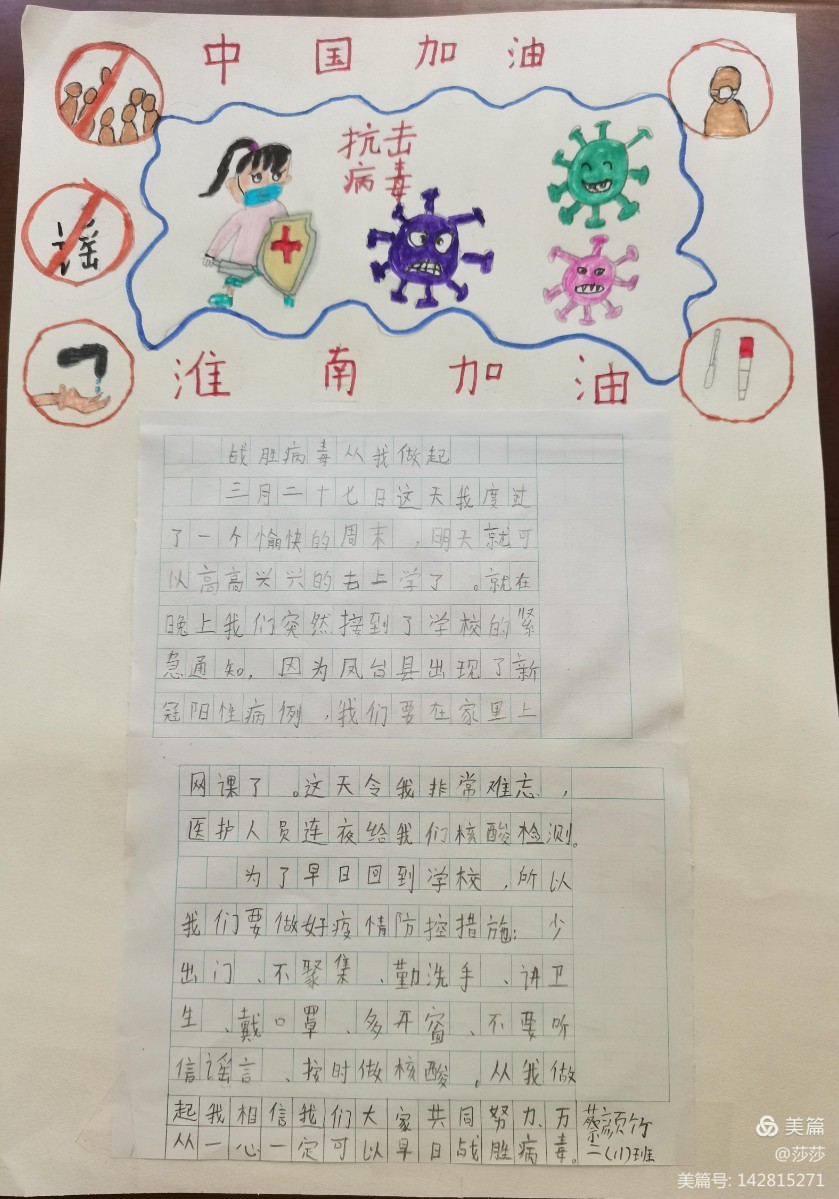 中国加油
抗击
病毒
谣
淮南加油
战胜病毒从我做起
三月二十七日这天我度过
了一个愉快的周末，明天就可
以高高兴兴的去上学了。就在
晚上我们突然接到了学校的紧
急通知，因为凤台县出现了新
冠阳性病例，我们要在家里上
网课了。这天令我非常难忘，
医护人员连夜给我们核酸检测。
为了早日回到学校，所以
我们要做好疫情防控措施：少
出门、不聚集、勤洗手、讲卫
生、戴口罩、多开窗、不要听
信谣言、按时做核酸。从我做
起我相信我们大家共同努力、万
从一心一定可以早日战胜病毒。
蔡颜竹
二(11)班
美篇
@莎莎
美篇号: 142815271